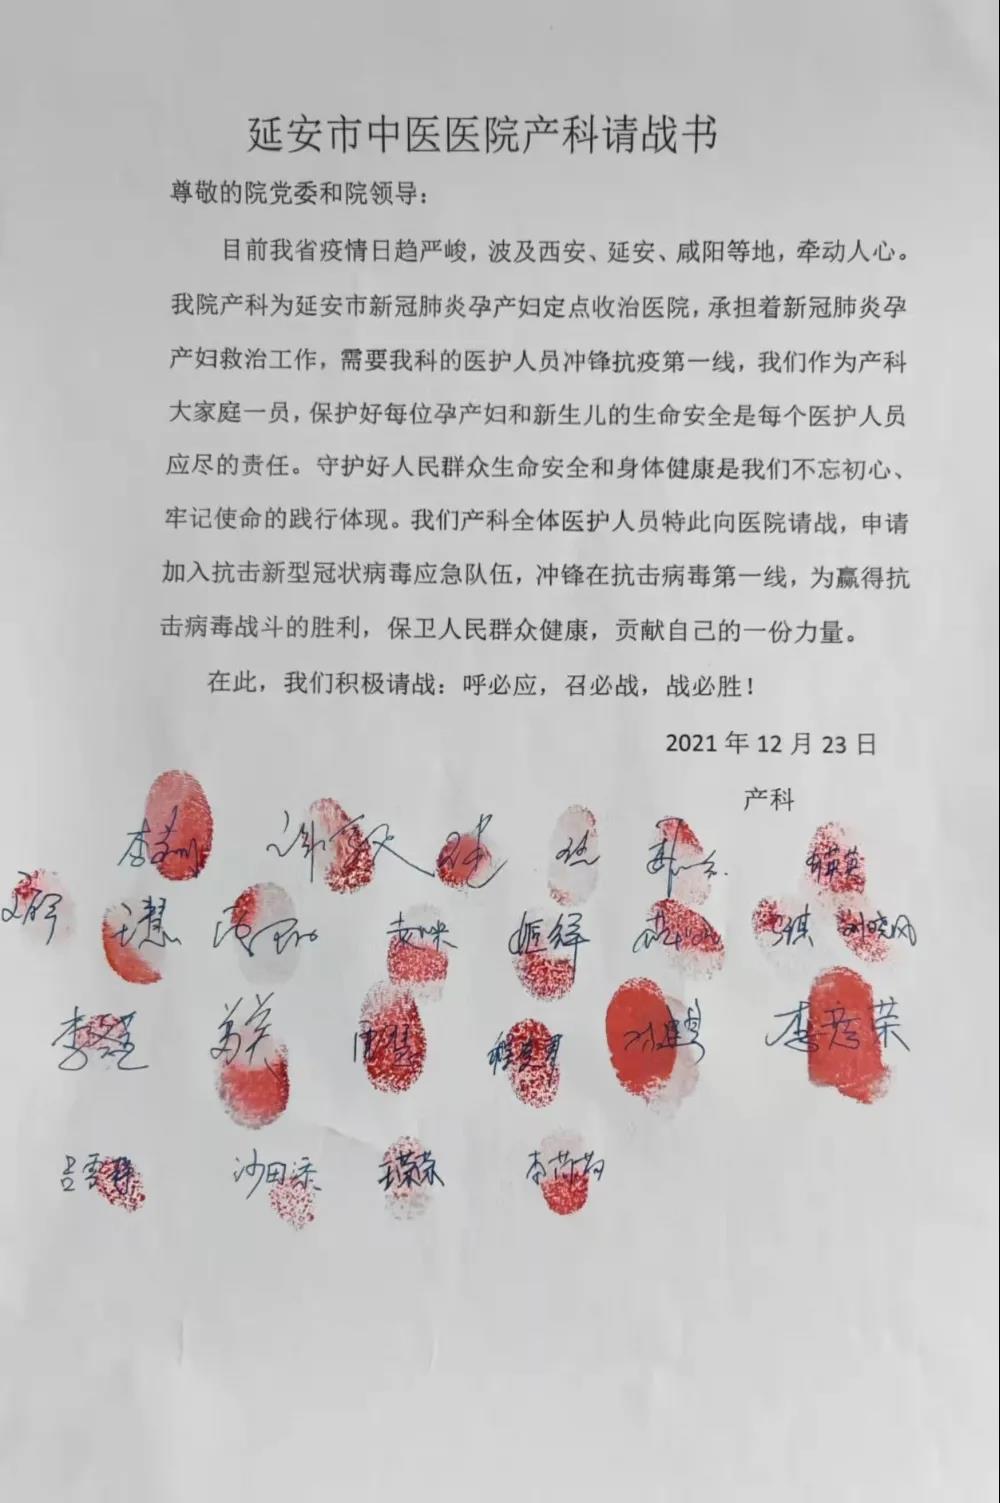 延安市中医医院产科请战书
尊敬的院党委和院领导：
目前我省疫情日趋严峻，波及西安、延安、咸阳等地，牵动人心。
我院产科为延安市新冠肺炎孕产妇定点收治医院，承担着新冠肺炎孕
产妇救治工作，需要我科的医护人员冲锋抗疫第一线，我们作为产科
大家庭一员，保护好每位孕产妇和新生儿的生命安全是每个医护人员
应尽的责任。守护好人民群众生命安全和身体健康是我们不忘初心、
牢记使命的践行体现。我们产科全体医护人员特此向医院请战，申请
加入抗击新型冠状病毒应急队伍，冲锋在抗击病毒第一线，为赢得抗
击病毒战斗的胜利，保卫人民群众健康，贡献自己的一份力量。
在此，我们积极请战：呼必应，召必战，战必胜！
2021 年 12 月 23 日
产科
刘晓凤
李彦荣